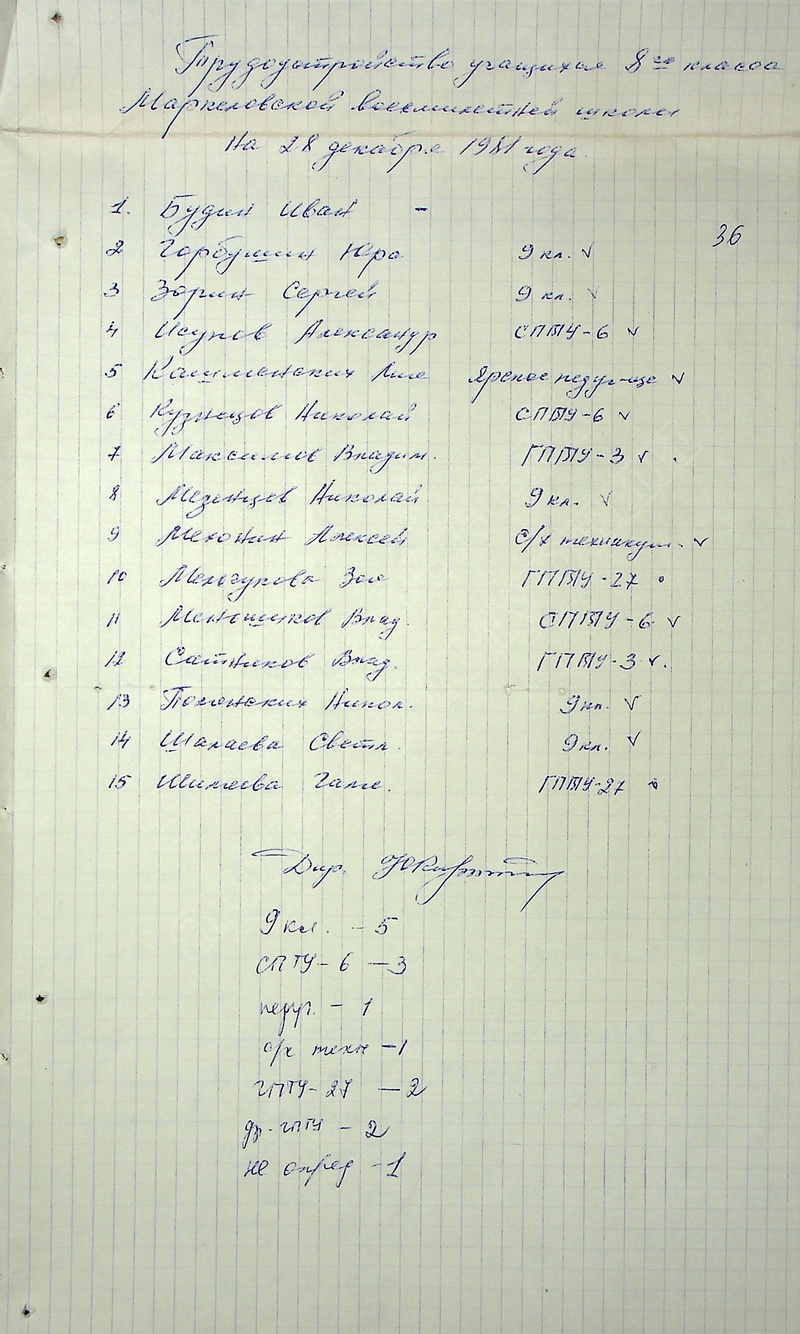 Трудоустройство учащихся 8го класса
Маркеловской восьмилетней школы
на 28 декабря 1981 года.
36
1. Будин Иван -
2 Горбушин Юра 9 кл. ✓
3 Зорин Сергей 9 кл. ✓
4 Исупов Александр СПТУ-6 ✓
5 Кашменских Ярское педуч-ще ✓
6 Кузнецов Николай СПТУ-6 ✓
7 Максимов Владим. ГПТУ-3 ✓
8 Мезенцев Николай 9 кл. ✓
9 Мехонин Алексей с/х техникум ✓
10 Мельчукова Зоя ГПТУ-27
11 Меньшиков Влад. СПТУ-6 ✓
12 Сатников Влад. ГПТУ-3 ✓.
13 Никол. 9 кл. ✓
14 Шалаева Светл. 9 кл. ✓
15 Галя. ГПТУ-27
Дир.
9 кл. - 5
СПТУ-6 - 3
педуч. - 1
с/х техн - 1
ГПТУ-27 - 2
др. ГПТУ - 2
не опред - 1